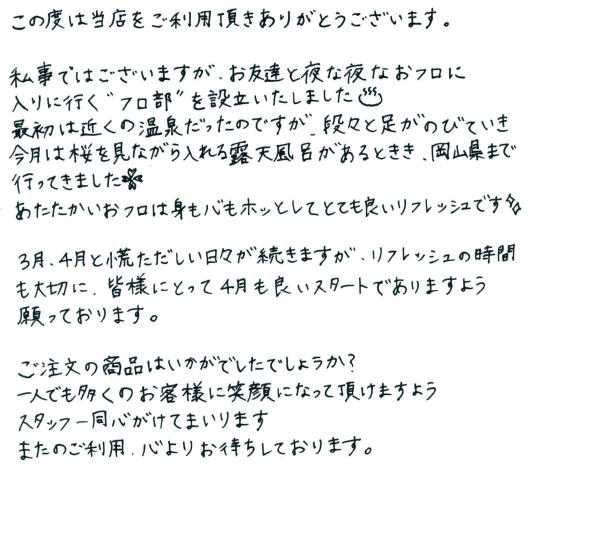 この度は当店をご利用頂きありがとうございます。
私事ではございますが、お友達と夜な夜なおフロに
入りに行く"フロ部"を設立いたしました♨
最初は近くの温泉だったのですが、段々と足がのびていき
今月は桜を見ながら入れる露天風呂があるときき、岡山県まで
行ってきました
あたたかいおフロは身も心もホッとしてとても良いリフレッシュです
3月、4月と慌ただしい日々が続きますが、リフレッシュの時間
も大切に、皆様にとって4月も良いスタートでありますよう
願っております。
ご注文の商品はいかがでしたでしょうか?
一人でも多くのお客様に笑顔になって頂けますよう
スタッフ一同心がけてまいります
またのご利用、心よりお待ちしております。